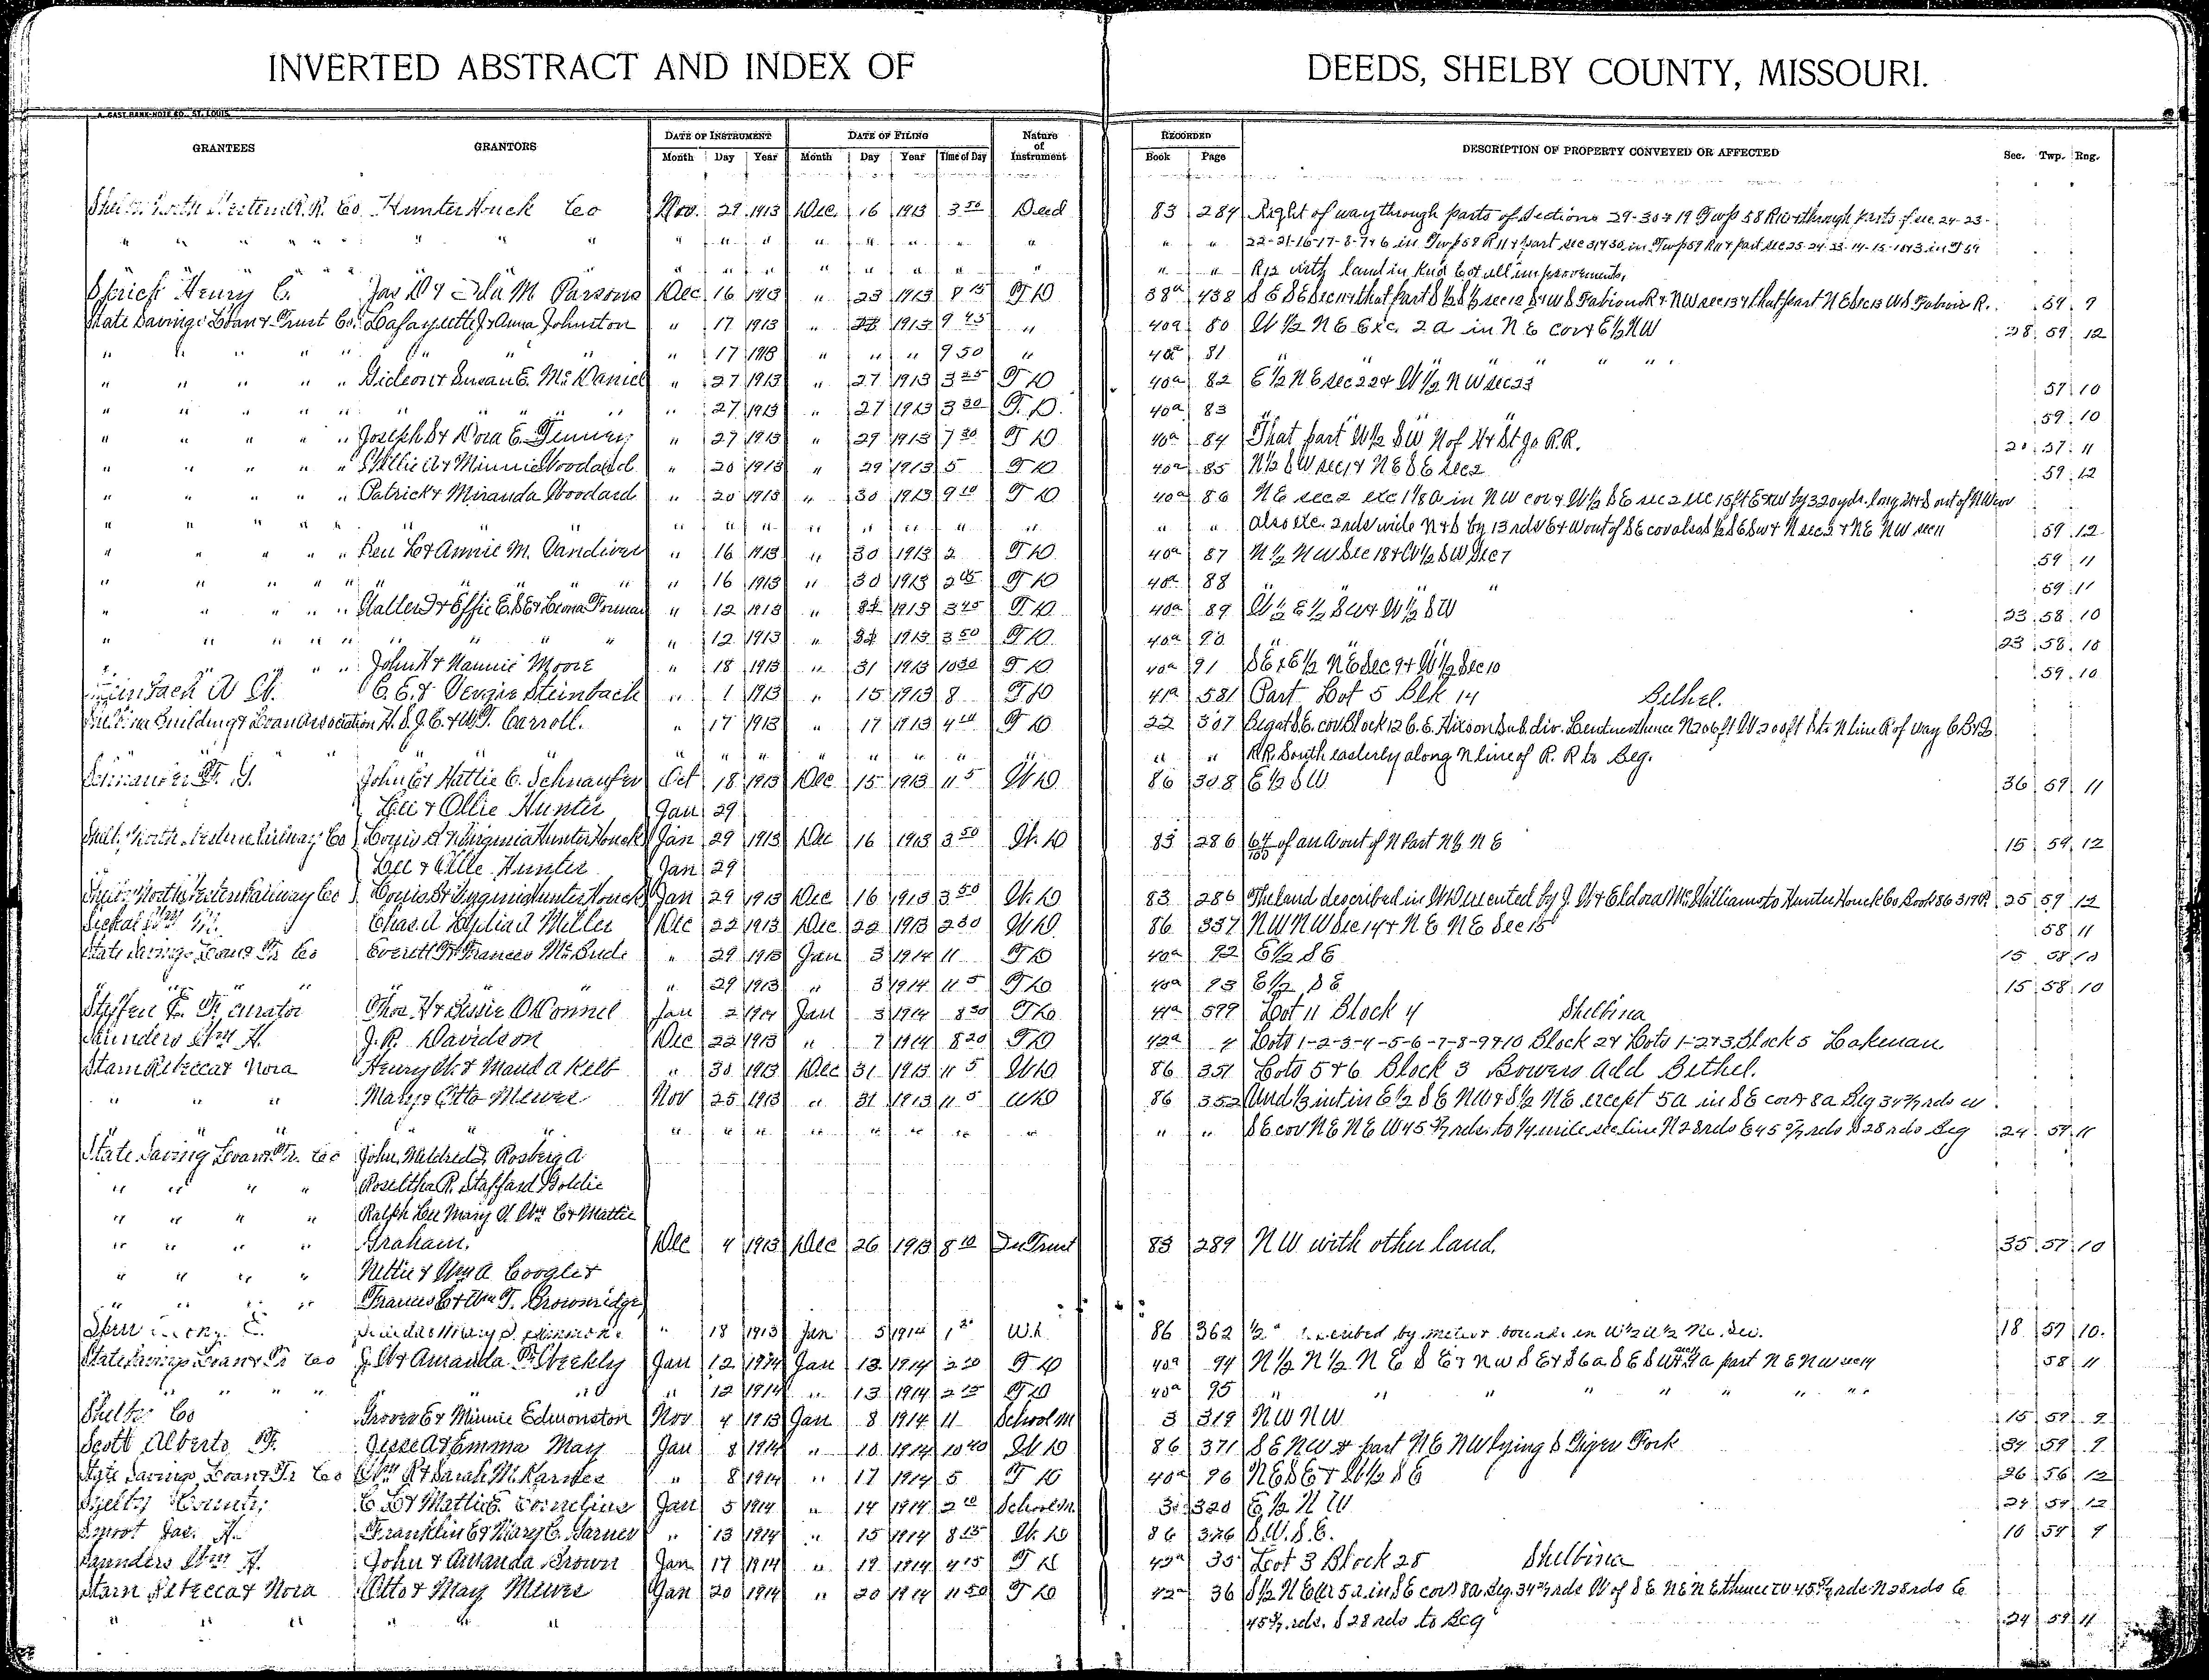 INVERTED ABSTRACT AND INDEX OF DEEDS, SHELBY COUNTY, MISSOURI.
A. GAST BANK-NOTE CO., ST. LOUIS.
GRANTEES GRANTORS DATE OF INSTRUMENT DATE OF FILING Nature of Instrument RECORDED DESCRIPTION OF PROPERTY CONVEYED OR AFFECTED Sec. Twp. Rng.
Month Day Year Month Day Year Time of Day Book Page
R. R. Co Hunter Houck Co Nov. 29 1913 Dec. 16 1913 3 50 Deed 83 284 Right of way through parts of Sections 29-30 & 19 Twp 58 through parts of sec. 24-23-
" " " " " " " " " " " " " " " " " " 22-21-16-17-8-7 & 6 in Twp 59 R 11 & part sec 31 & 30 in Twp 59 R 11 & part sec 25-24-23-14-15-10 & 3 in T 59
" " " " " " " " " " " " " " R 12 with land in all improvements,
Henry C. Jas D & Ida M Parsons Dec 16 1913 " 23 1913 8 15 T D 38a 438 S E S E Sec 11 & that part S 1/2 S 1/2 sec 12 S & W S Fabion R & NW sec 13 & that part N E Sec 13 W S Fabion R. 59 9
State Savings Loan & Trust Co. Lafayette J & Anna Johnston " 17 1913 " 23 1913 9 45 " 40a 80 W 1/2 N E Exc. 2 a in N E cor & E 1/2 NW 28 59 12
" " " " " " " " " 17 1913 " " " 9 50 " 40a 81 " " " " "
" " " " " Gideon & Susan E. McDaniel " 27 1913 " 27 1913 3 25 T D 40a 82 E 1/2 N E sec 22 & W 1/2 N W sec 23 57 10
" " " " " " " " " 27 1913 " 27 1913 3 30 T. D. 40a 83 59 10
" " " " " Joseph S & Dora E. " 27 1913 " 29 1913 7 30 T D 40a 84 That part W 1/2 SW N of H & St Jo R.R. 20 57 11
" " " " " Willie A & Minnie Woodard " 20 1913 " 29 1913 5 T D 40a 85 N 1/2 S W sec 1 & N E S E sec 2 59 12
" " " " " Patrick & Miranda Woodard " 20 1913 " 30 1913 9 10 T D 40a 86 N E sec 2 exc 1 1/8 a in N W cor & W 1/2 S E sec 2 exc 15 ft E & W by 320 yds. long N & S out of NW cor
" " " " " " " " " " " " " " " " " " also exc. 2 rds wide N & S by 13 rds E & W out of S E cor also S 1/2 S E S W & N sec 2 & N E NW sec 11 59 12
" " " " " Ben L & Annie M. Vandiver " 16 1913 " 30 1913 2 T D 40a 87 N 1/2 N W Sec 18 & W 1/2 S W Sec 7 59 11
" " " " " " " " " 16 1913 " 30 1913 2 05 T D 40a 88 " " " 59 11
" " " " " & Effie E. S E & Leona Forman " 12 1913 " 31 1913 3 45 T D 40a 89 W 1/2 E 1/2 S W & W 1/2 S W 23 58 10
" " " " " " " " " 12 1913 " 31 1913 3 50 T D 40a 90 " " " 23 58 10
" " " " John H & Nannie Moore " 18 1913 " 31 1913 10 30 T D 40a 91 S E & E 1/2 N E Sec 9 & W 1/2 Sec 10 59 10
C. E. & Vergie Steinbach " 1 1913 " 15 1913 8 T D 41a 581 Part Lot 5 Blk 14 Bethel.
Building & Loan Association H. S. J. E. & W. T. Carroll. " 17 1913 " 17 1913 4 10 T D 22 307 Beg at S. E. cor Block 12 C. E. Hixson Sub. div. thence N 206 ft W 200 ft S to N line R of way C B & Q
" " " " " " " " " " " " " R.R. South easterly along N line of R. R to Beg.
John C & Hattie E. Schnaufer Oct 18 1913 Dec 15 1913 11 5 W D 86 308 E 1/2 S W 36 59 11
Lee & Ollie Hunter Jan 29
Railway Co Louis & Virginia Hunter Houck Jan 29 1913 Dec 16 1913 3 50 W. D 83 286 64/100 of an A out of N Part N E N E 15 59 12
Lee & Ollie Hunter Jan 29
Railway Co Louis & Virginia Hunter Houck Jan 29 1913 Dec 16 1913 3 50 W. D 83 286 The land described in W D executed by J. W & Eldora McWilliams to Hunter Houck Co Book 86 317 25 59 12
Chas. A Lydia A Miller Dec 22 1913 Dec 22 1913 2 30 W D 86 337 N W N W Sec 14 & N E N E Sec 15 58 11
State Savings Loan & Tr Co Everett F & Frances McBride " 29 1913 Jan 3 1914 11 T D 40a 92 E 1/2 S E 15 58 10
" " " " " " " 29 1913 " 3 1914 11 5 T D 40a 93 E 1/2 S E 15 58 10
curator Thos. H & Bessie O'Connel Jan 2 1914 Jan 3 1914 8 30 T D 41a 599 Lot 11 Block 4 Shelbina
Saunders Wm H. J. R. Davidson Dec 22 1913 " 7 1914 8 20 T D 42a 4 Lots 1-2-3-4-5-6-7-8-9 & 10 Block 2 & Lots 1-2 & 3 Block 5 Lakenan.
Starn Rebecca & Nora Henry W & Maud A Kelb " 30 1913 Dec 31 1913 11 5 W D 86 351 Lots 5 & 6 Block 3 Bowers Add Bethel.
" " " Mary & Otto Mewes Nov 25 1913 " 31 1913 11 5 W D 86 352 Und 1/3 int in E 1/2 S E NW & S 1/2 NE except 5 a in S E cor & 8 a Beg 34 2/7 rds W
" " " " " " " " " " " " " " S E cor N E N E W 45 5/7 rds. to 1/4 mile sec line N 28 rds E 45 5/7 rds S 28 rds Beg 24 59 11
State Saving Loan & Tr. Co John, Mildred D, Rosberg A.
" " " " Roseltha R. Stafford Goldie
" " " " Ralph Lee Mary V. Wm C & Mattie
" " " " Graham. Dec 4 1913 Dec 26 1913 8 10 In Trust 83 289 N W with other land. 35 57 10
" " " " Nettie & Wm A Coogle &
" " " " Frances E & Wm T. Brownridge
" 18 1913 Jan 5 1914 86 362 described by metes & bounds in 18 57 10.
State Savings Loan & Tr Co J. W & Amanda F. Weekly Jan 12 1914 Jan 13 1914 2 20 T D 40a 94 N 1/2 N 1/2 N E S E & N W S E & 86 a S E S W a part N E N W sec 14 58 11
" " " " " " " " 12 1914 " 13 1914 2 25 T D 40a 95 " " " " " " "
Shelby Co Grover E & Minnie Edmonston Nov 4 1913 Jan 8 1914 11 School M 3 319 N W N W 15 59 9
Scott Alberto F. Jesse A & Emma May Jan 8 1914 " 10 1914 10 40 W D 86 371 S E N W & part N E N W lying S Tiger Fork 34 59 9
State Savings Loan & Tr Co Wm R & Sarah M. Karnes " 8 1914 " 17 1914 5 T D 40a 96 N E S E & W 1/2 S E 26 56 12
Shelby County C. L. & Mattie E Cornelius Jan 5 1914 " 14 1914 2 10 School M. 3 320 E 1/2 N W 24 59 12
Smoot Jas. H. Franklin E & Mary C. Garner " 13 1914 " 15 1914 8 15 W. D 86 376 S.W. S.E. 10 59 9
Saunders Wm H. John & Amanda Brown Jan 17 1914 " 19 1914 4 15 T D 42a 35 Lot 3 Block 28 Shelbina
Starn Rebecca & Nora Otto & May Mewes Jan 20 1914 " 20 1914 11 50 T D 42a 36 S 1/2 N E Ex 5 a. in S E cor & 8 a Beg. 34 2/7 rds W of S E N E N E thence W 45 5/7 rds N 28 rds E
" " " " " " 45 5/7 rds. S 28 rds to Beg 24 59 11